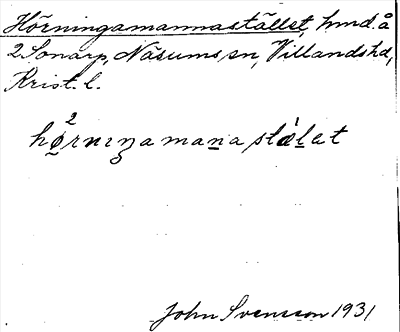 Hörningamannastället, hmd. å
2 Sonarp, Näsums sn, Villands hd,
Krist. l.
2
hørniŋamana stälat
John Svensson 1931